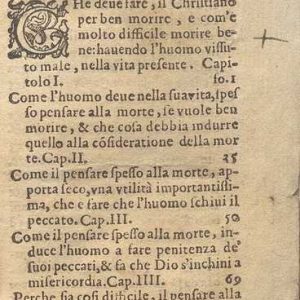 CHe deue fare, il Christiano
per ben morire, e com'e
molto difficile morire be
ne: hauendo l'huomo vissu
to male, nella vita presente. Capi
tolo I. fo.1
Come l'huomo deue nella sua vita, spes
so pensare alla morte, se vuole ben
morire, & che cosa debbia indurre
quello alla cõsideratione della mor
te. Cap. II. 25
Come il pensare spesso alla morte, ap
porta seco, vna vtilità importantissi
ma, che e fare che l'huomo schiui il
peccato. Cap. III. 50
Come il pensare spesso alla morte, in
duce l'huomo a fare penitenza de'
suoi peccati, & fa che Dio s'inchini a
misericordia. Cap. IIII. 69
Perche sia cosi difficile, il pensare alla